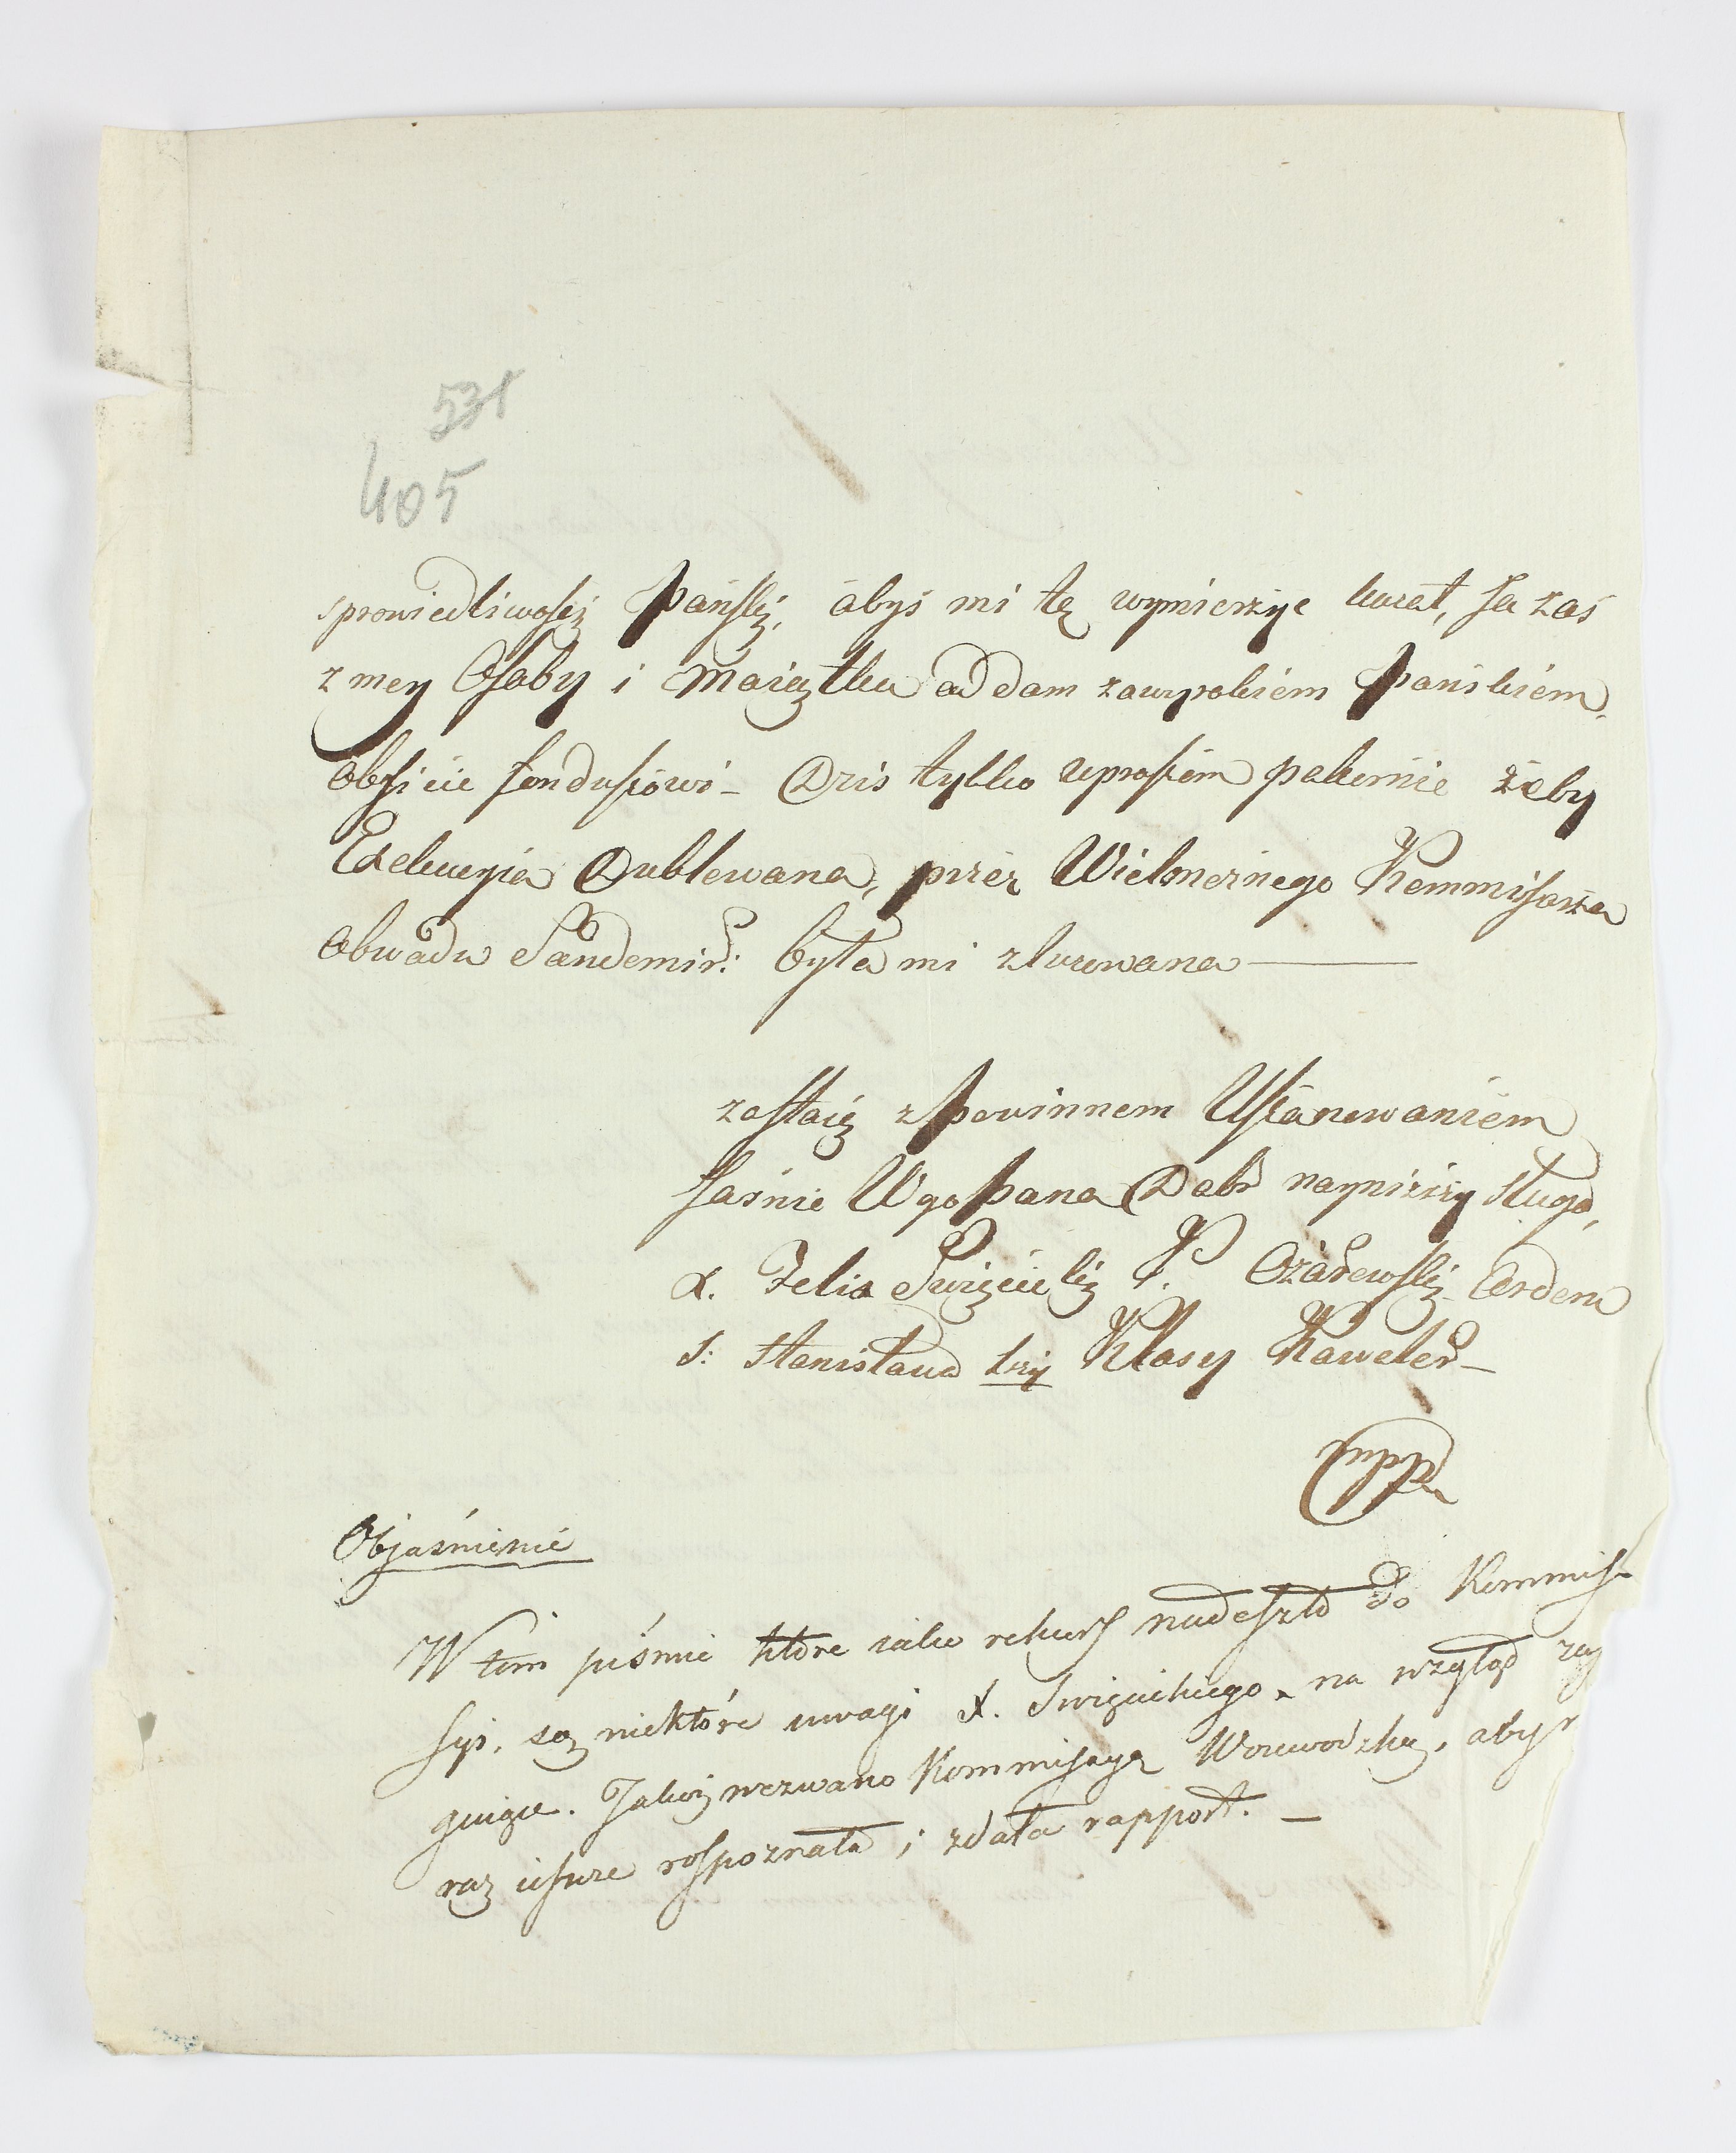 531
405
sprawiedliwości Pańskiej, abyś mi tę wymierzyć kazał, Ja zaś
z mey Osoby i Maiątku oddam zawyrokiem Pańskiem,
obficie funduszowi – Dziś tylko upraszam pokornie żeby
Exekucyia Dublowana, przez Wielmożnego Kommisarza
Obwodu Sandomir: była mi zluzowana —
zostaię z Powinnem Uszanowaniem
Jaśnie Wgo Pana Dobr nayniższy sługa,
X. Felix Swięcicki P. Ożarowski Orderu
S: Stanisława 3ciy Klasy Kawaler –
mpp
Objaśnienie
W tem piśmie które iako rekurs nadeszło do Kommis
syi, są niektóre uwagi X. Swięcickiego na wzgląd za
guiące. Jakoż wezwano Kommisyą Woiewodzką, aby
raz ieszcze rospoznała i zdała rapport. —